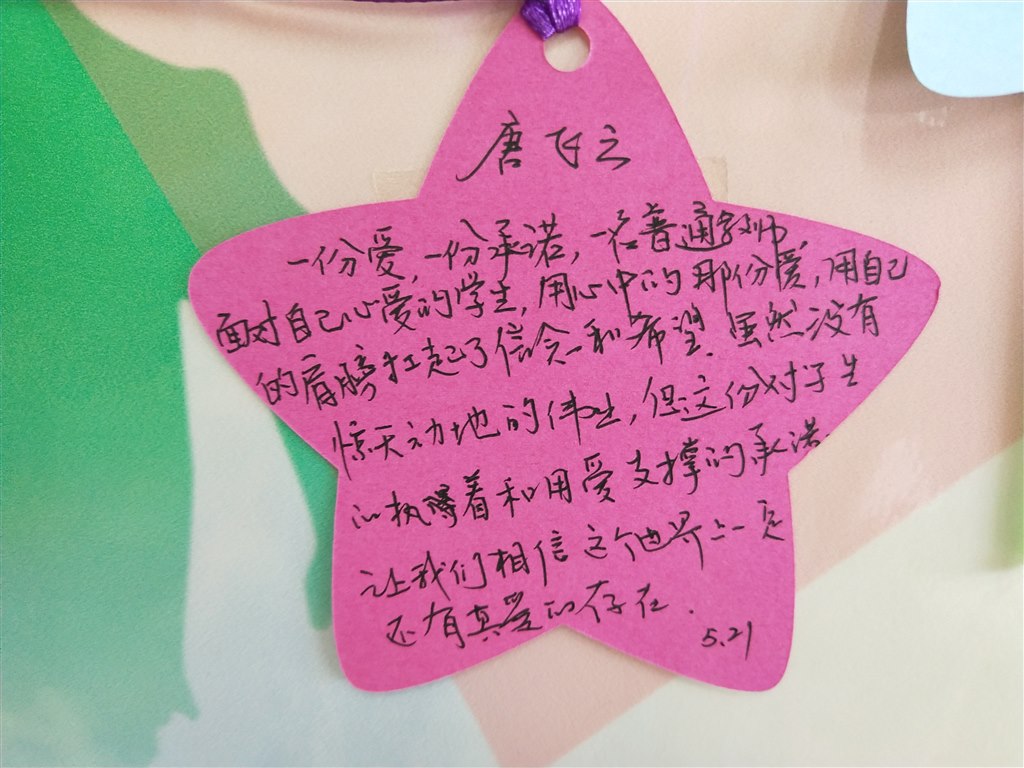 唐飞云
一份爱,一份承诺,一名普通教师,
面对自己心爱的学生,用心中的那份爱,用自己
的肩膀扛起了信念和希望.虽然没有
惊天动地的伟业,但这份对学生
的执着和用爱支撑的承诺.
让我们相信这个世界上一定
还有真爱的存在.
5.21